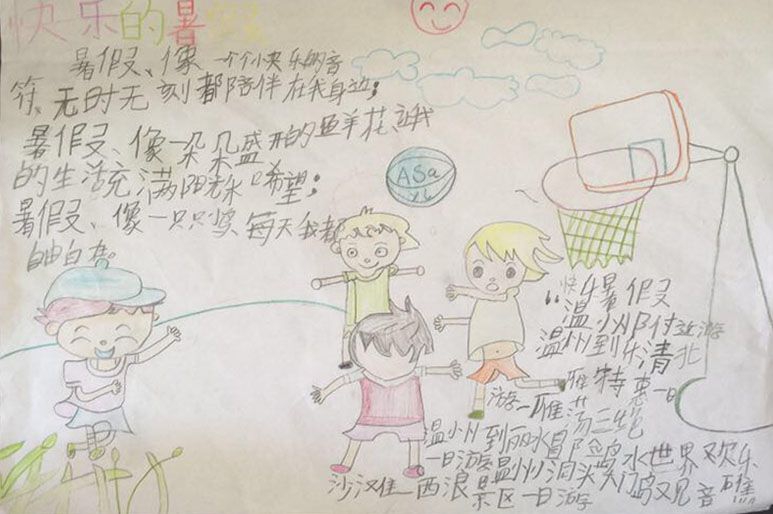 快乐的暑假
暑假、像一个个快乐的音
符、无时无刻都陪伴在我身边；
暑假、像一朵朵盛开的鲜花让我
的生活充满阳光水希望；
暑假、像一只只鸟每天我都
自由自在。
ASa
快乐暑假
温州附近游
温州到乐清北
雁特惠一日
游—雁荡三绝
温州到丽水冒险岛水世界欢乐
一日游温州洞头半屏岛又见音礁
沙汉佳—西浪景区一日游